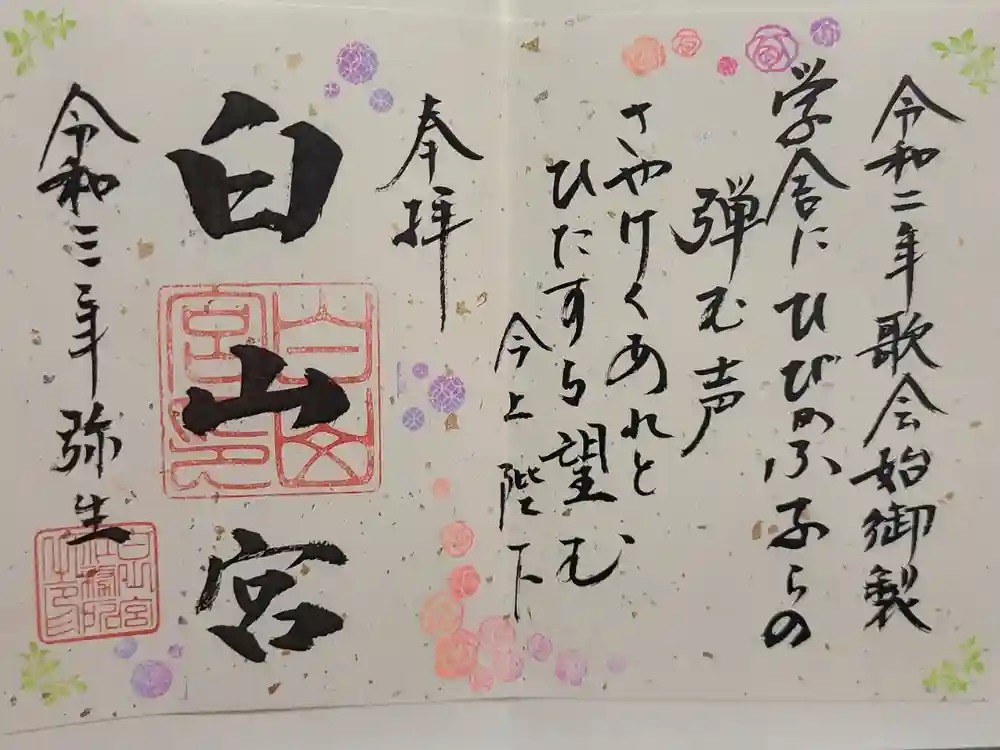 令和二年歌会始御製
学舎にひびかふ子らの
弾む声
さやけくあれと
ひたすら望む
今上陛下
奉拝
白山宮
白山宮印
令和三年弥生
白山宮社務所之印